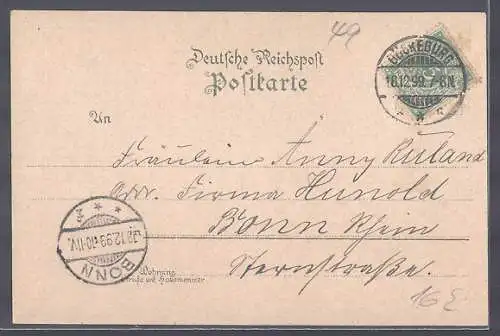 49
Deutsche Reichspost
Postkarte
BÜCKEBURG
16.12.99. 7-8N.
An
Fräulein Anny Ruland
Adr. Firma Hunold
Bonn Rhein
Sternstraße.
BONN
.12.99.10-11V.
Wohnung
Straße und Hausnummer
16 E